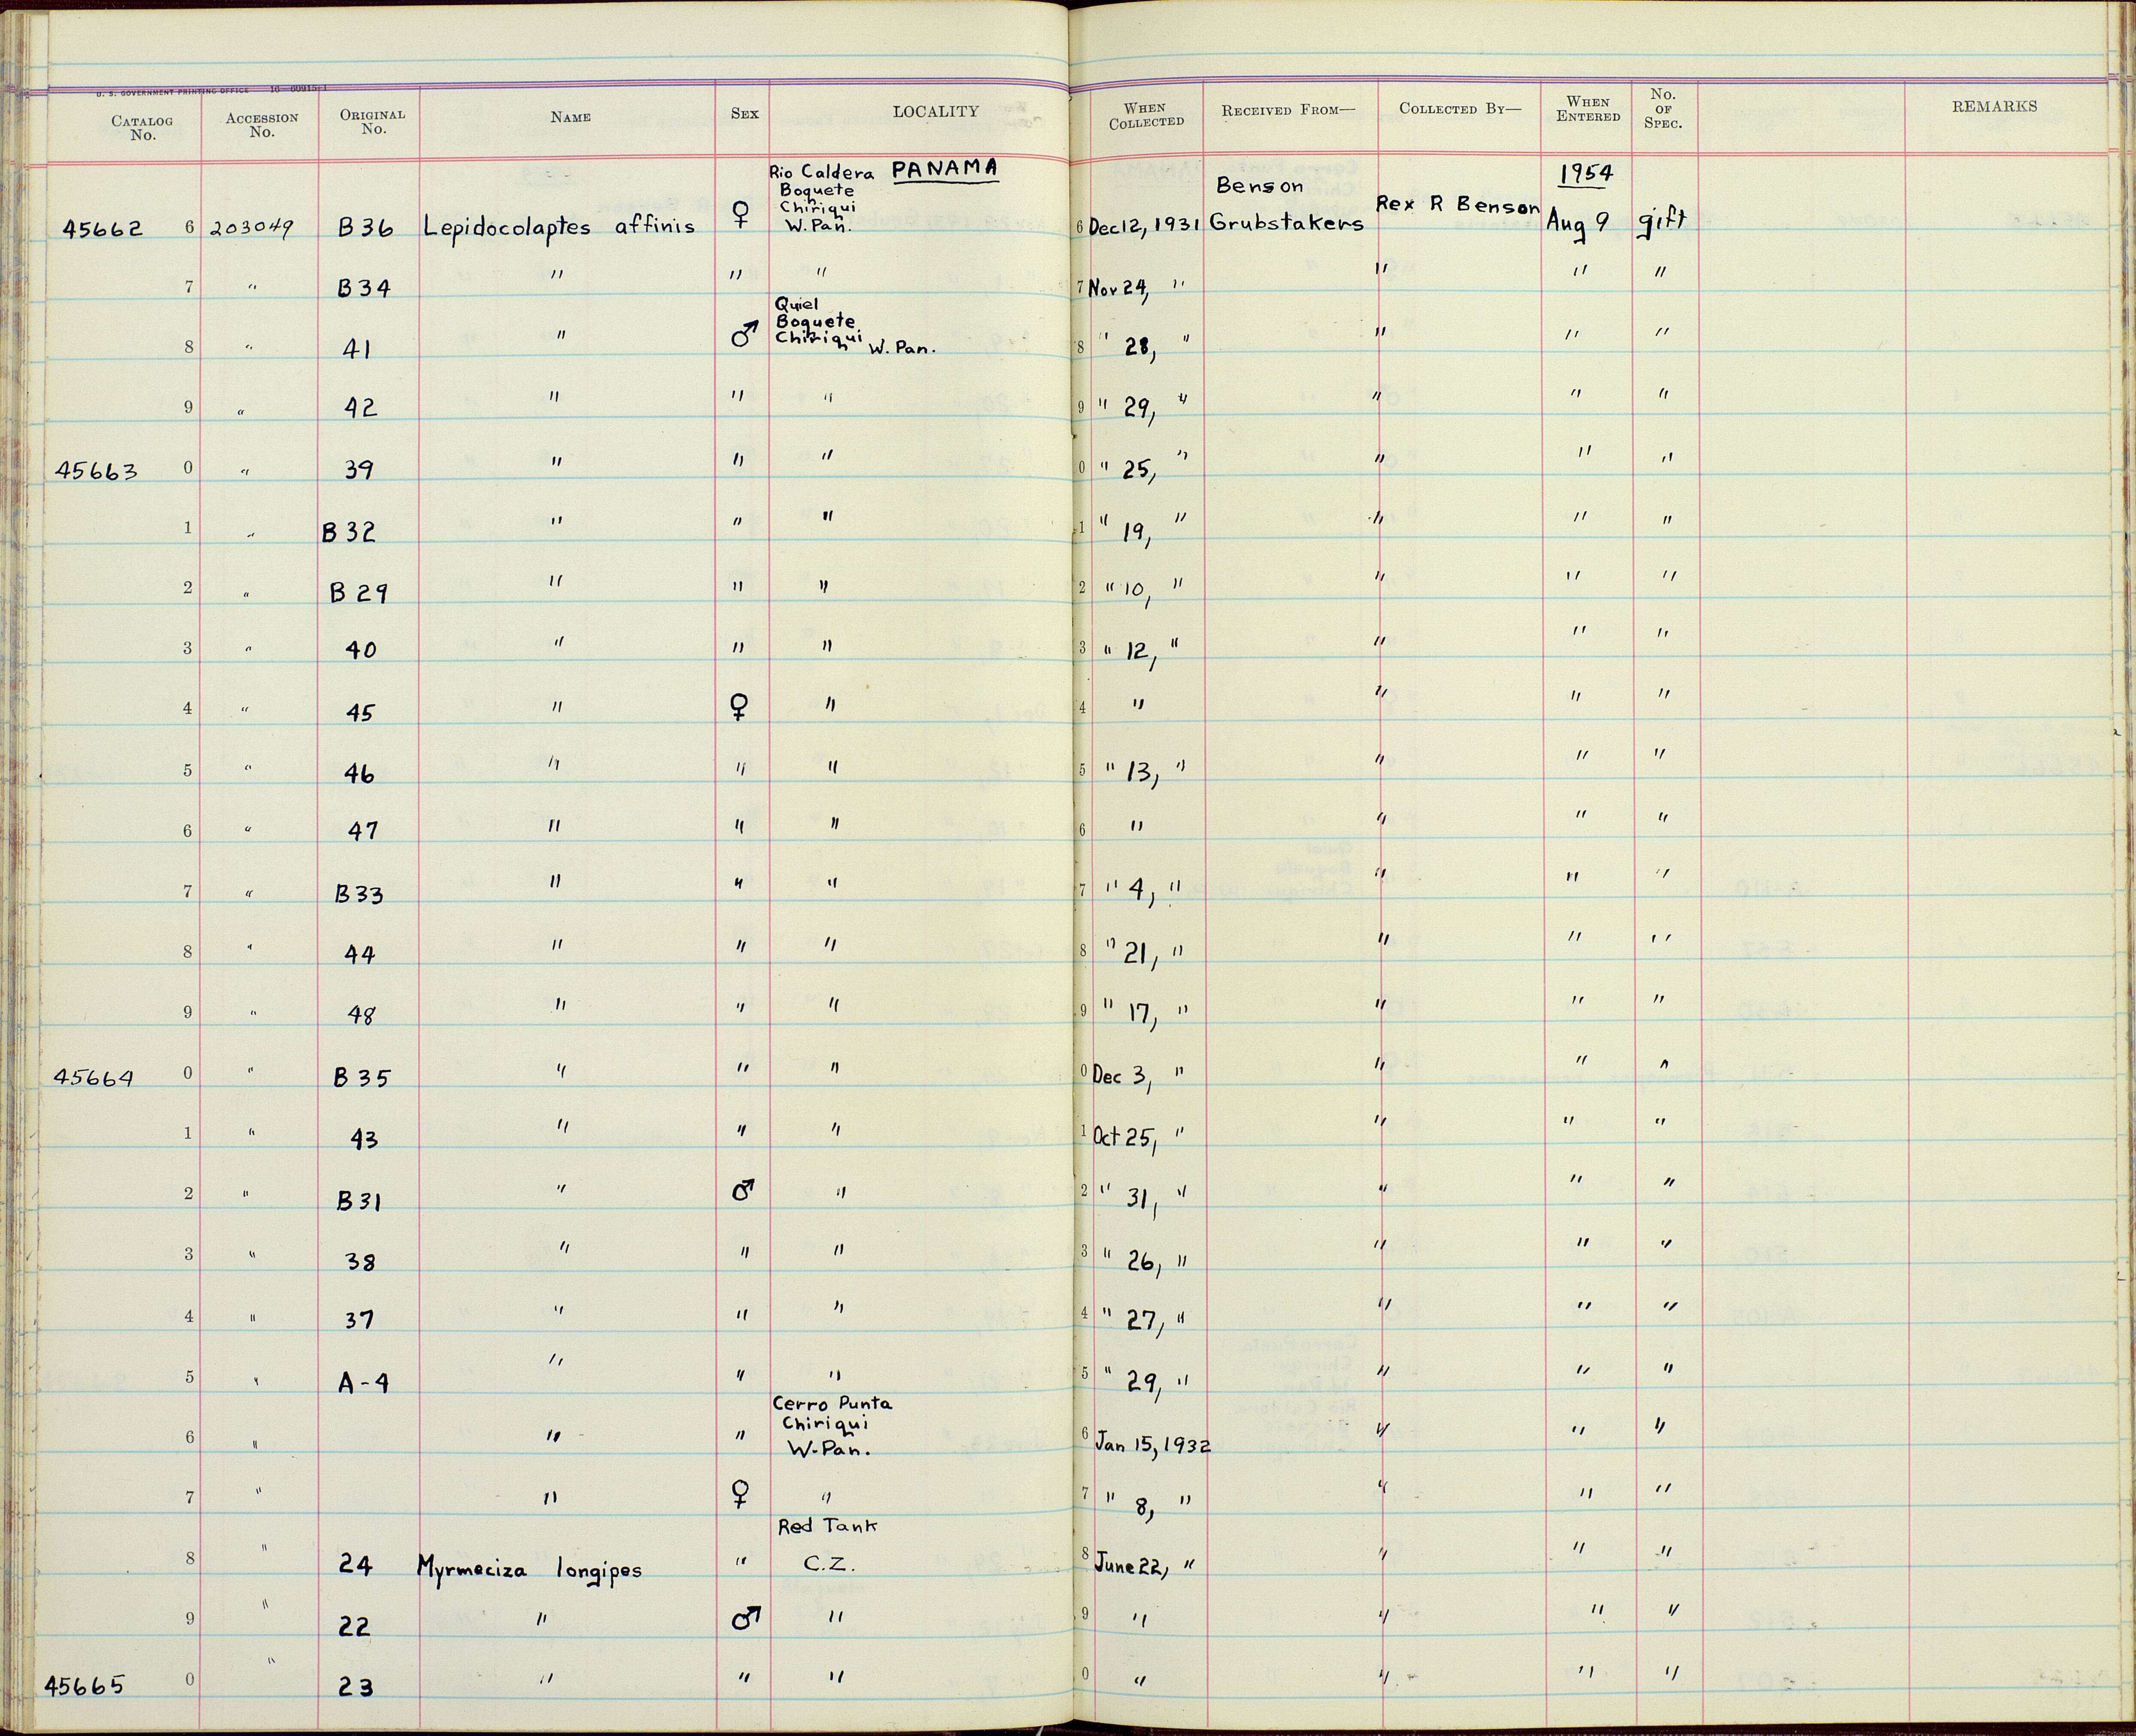 U. S. GOVERNMENT PRINTING OFFICE 16—60915-1
CATALOG No. ACCESSION No. ORIGINAL No. NAME SEX LOCALITY WHEN COLLECTED RECEIVED FROM— COLLECTED BY— WHEN ENTERED No. OF SPEC. REMARKS
Rio Caldera PANAMA 1954
Boquete Benson
Chiriqui Rex R Benson
45662 6 203049 B 36 Lepidocolaptes affinis ♀ W. Pan. 6 Dec 12, 1931 Grubstakers Aug 9 gift
7 " B 34 " " " 7 Nov 24, " " " "
Quiel
Boquete
Chiriqui
8 " 41 " ♂ W. Pan. 8 " 28, " " " "
9 " 42 " " " 9 " 29, " " " "
45663 0 " 39 " " " 0 " 25, " " " "
1 " B 32 " " " 1 " 19, " " " "
2 " B 29 " " " 2 " 10, " " " "
3 " 40 " " " 3 " 12, " " " "
4 " 45 " ♀ " 4 " " " "
5 " 46 " " " 5 " 13, " " " "
6 " 47 " " " 6 " " " "
7 " B 33 " " " 7 " 4, " " " "
8 " 44 " " " 8 " 21, " " " "
9 " 48 " " " 9 " 17, " " " "
45664 0 " B 35 " " " 0 Dec 3, " " " "
1 " 43 " " " 1 Oct 25, " " " "
2 " B 31 " ♂ " 2 " 31, " " " "
3 " 38 " " " 3 " 26, " " " "
4 " 37 " " " 4 " 27, " " " "
5 " A-4 " " " 5 " 29, " " " "
Cerro Punta
Chiriqui
6 " " " W. Pan. 6 Jan 15, 1932 " " "
7 " " ♀ " 7 " 8, " " " "
Red Tank
8 " 24 Myrmeciza longipes " C.Z. 8 June 22, " " " "
9 " 22 " ♂ " 9 " " " "
45665 0 " 23 " " " 0 " " " "